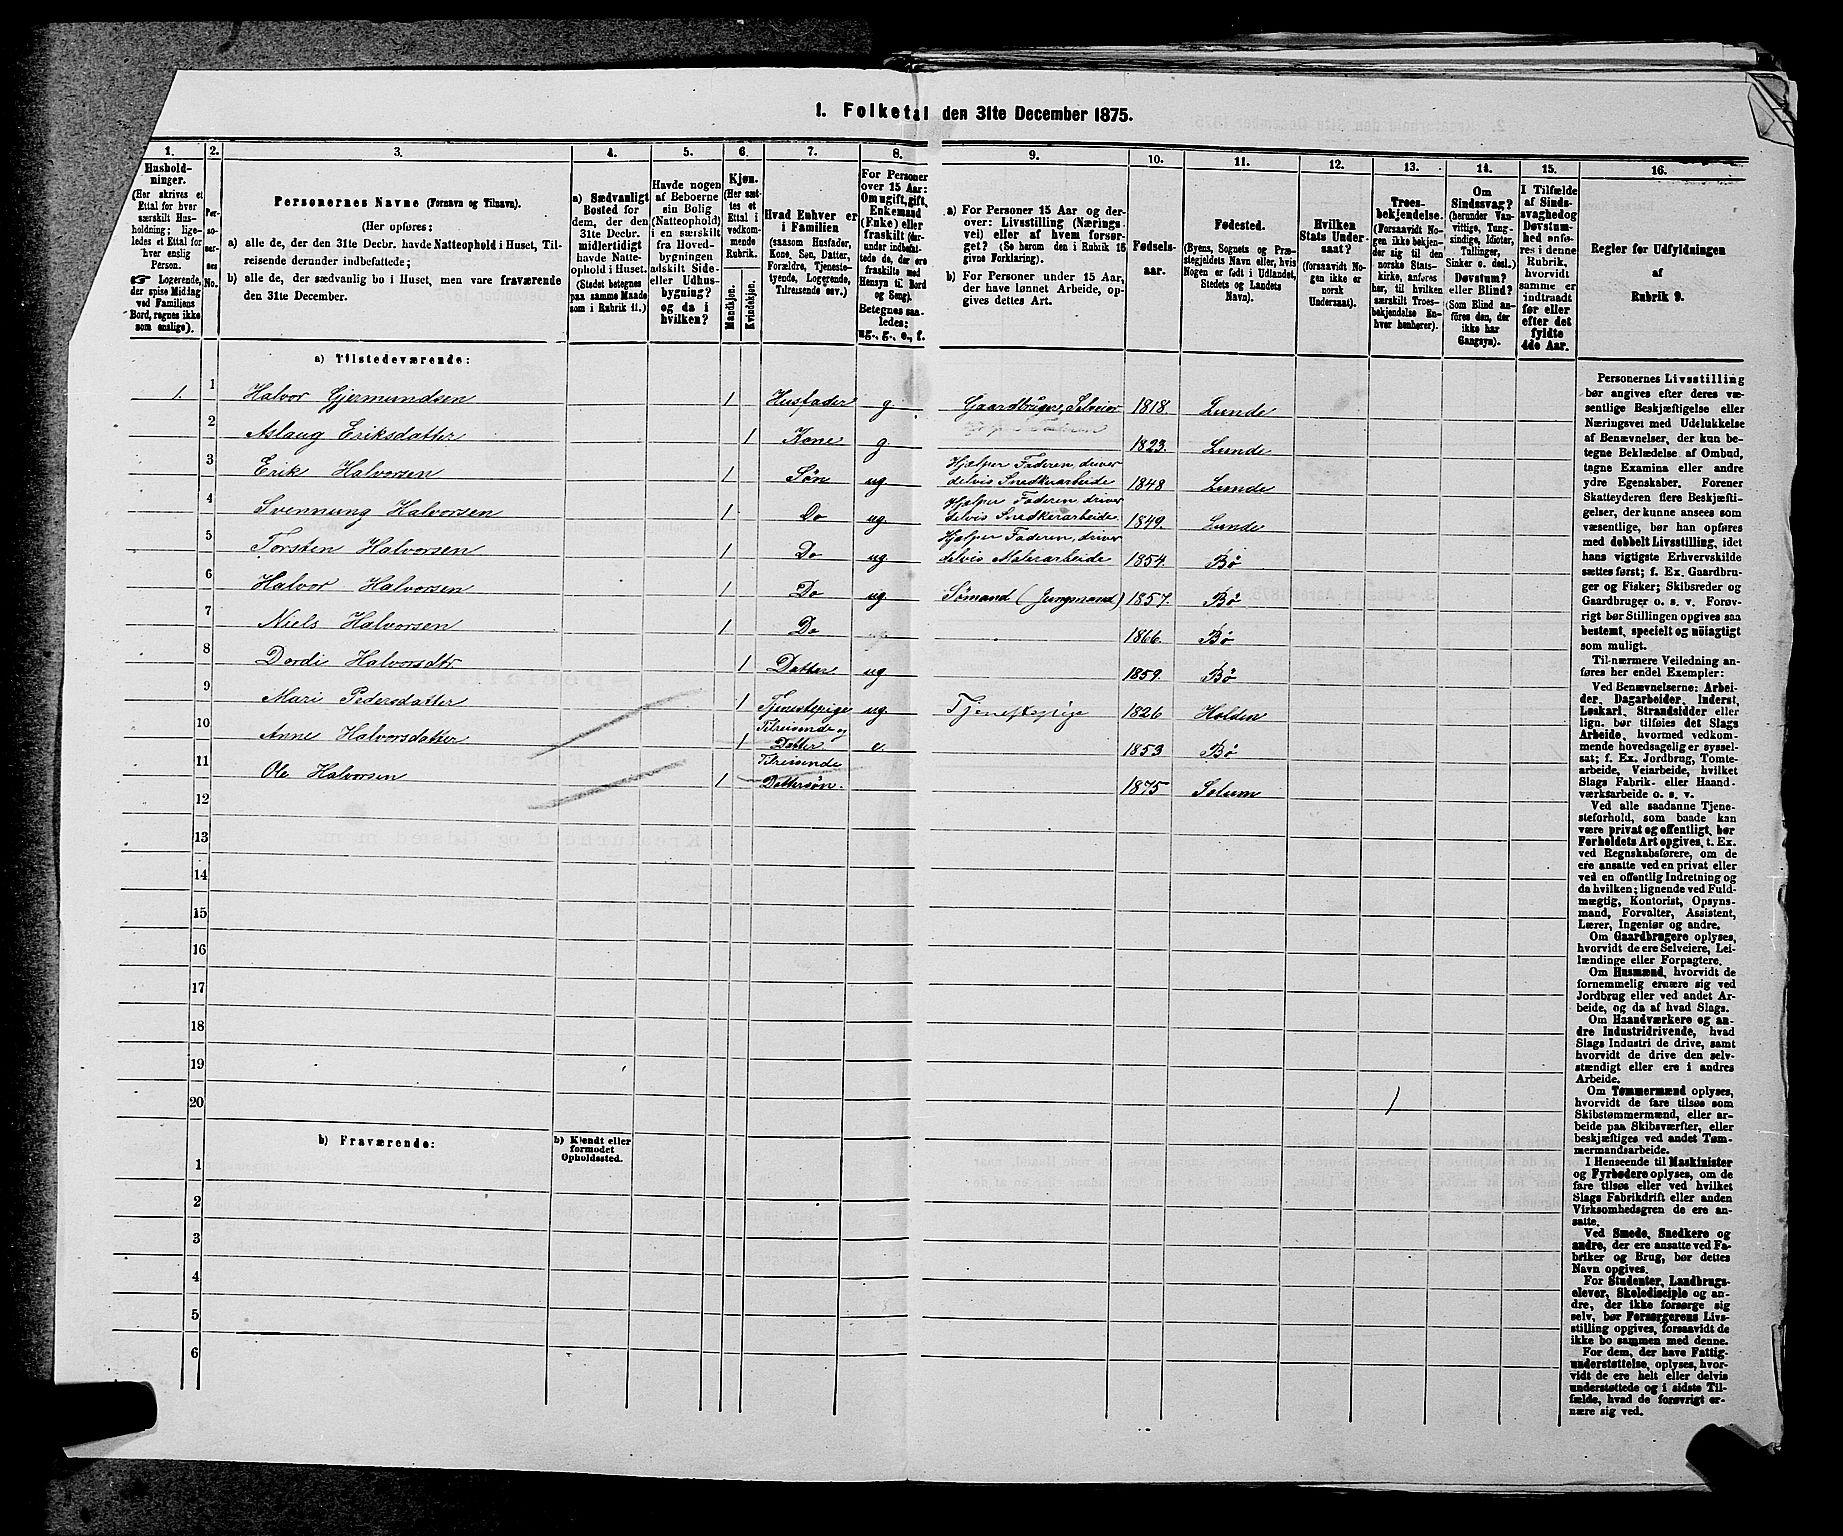 1. Folketal den 31te December 1875.
1. 2. 3. 4. 5. 6. 7. 8. 9. 10. 11. 12. 13. 14. 15. 16.
Hushold-
ninger.
(Her skrives et
Ettal for hver
særskilt Hus-
holdning; lige-
ledes et Ettal for
hver enslig
Person.
☞ Logerende,
der spise Middag
ved Familiens
Bord, regnes ikke
som enslige).
Per-
so-
ner-
nes
No.
Personernes Navne (Fornavn og Tilnavn).
(Her opføres:
a) alle de, der den 31te Decbr. havde Natteophold i Huset, Til-
reisende derunder indbefattede;
b) alle de, der sædvanlig bo i Huset, men vare fraværende
den 31te December.
a) Sædvanligt
Bosted for
dem, der den
31te Decbr.
midlertidigt
havde Natte-
ophold i Huset.
(Stedet betegnes
paa samme Maade
som i Rubrik 11.)
Havde nogen
af Beboerne
sin Bolig
(Natteophold)
i en særskilt
fra Hoved-
bygningen
adskilt Side-
eller Udhus-
bygning?
og da i
hvilken?
Kjøn.
(Her sæt-
tes et
Ettal i
vedkom-
mende
Rubrik.
Mandkjøn.
Kvindekjøn.
Hvad Enhver er
i Familien
(saasom Husfader,
Kone, Søn, Datter,
Forældre, Tjeneste-
tyende, Logerende,
Tilreisende osv.)
For Personer
over 15 Aar:
Om ugift, gift,
Enkemand
(Enke) eller
fraskilt (her-
under indbefat-
tede de, der ere
fraskilte med
Hensyn til Bord
og Seng).
Betegnes saa-
ledes:
ug., g., e., f.
a) For Personer 15 Aar og der-
over: Livsstilling (Nærings-
vei) eller af hvem forsør-
get? (Se herom den i Rubrik 16
givne Forklaring).
b) For Personer under 15 Aar,
der have lønnet Arbeide, op-
gives dettes Art.
Fødsels-
aar.
Fødested.
(Byens, Sognets og Præ-
stegjeldets Navn eller, hvis
Nogen er født i Udlandet,
Stedets og Landets
Navn).
Hvilken
Stats Under-
saat?
(forsaavidt No-
gen ikke er
norsk
Undersaat).
Troes-
bekjendelse.
(Forsaavidt No-
gen ikke bekjen-
der sig til den
norske Stats-
kirke, anføres
her, til hvilken
særskilt Troes-
bekjendelse En-
hver henhører).
Om
Sindssvag?
(herunder Van-
vittige, Tung-
sindige, Idioter,
Tullinger,
Sinker o. desl.)
Døvstum?
eller Blind?
(Som Blind an-
føres den, der
ikke har
Gangsyn).
I Tilfælde
af Sinds-
svaghed og
Døvstum-
hed anfø-
res i denne
Rubrik,
hvorvidt
samme er
indtraadt
før eller
efter det
fyldte
4de Aar.
Regler for Udfyldningen
af
Rubrik 9.
a) Tilstedeværende:
1. 1 Halvor Gjermundsen 1 Husfader g Gaardbruger, Selveier 1818. Lunde
2 Aslaug Eriksdatter 1 Kone g 1823. Lunde
3 Erik Halvorsen 1 Søn ug Hjælper Faderen, driver
delvis Snedkerarbeide 1848 Lunde
4 Svennung Halvorsen 1 Do ug. Hjælper Faderen driver
delvis Snedkerarbeide. 1849. Lunde
5 Torsten Halvorsen 1 Do ug Hjælper Faderen, driver
delvis Malerarbeide 1854. Bø
6 Halvor Halvorsen 1 Do ug. Sømand (Jungmand) 1857. Bø
7 Niels Halvorsen 1 Do 1866. Bø
8 Dordi Halvorsdtr 1 Datter ug 1859. Bø
9 Mari Pedersdatter 1 Tjenestepige ug. Tjenestepige 1826 Holden
10 Anne Halvorsdatter 1 Tilreisende og
Datter e. 1853 Bø
11 Ole Halvorsen 1 Tilreisende
Dattersøn. 1875 Solum
12
13
14
15
16
17
18
19
20
b) Fraværende:
b) Kjendt eller
formodet
Opholdssted.
1
2
3
4
5
6
Personernes Livsstilling
bør angives efter deres væ-
sentlige Beskjæftigelse eller
Næringsvei med Udelukkelse
af Benævnelser, der kun be-
tegne Beklædelse af Ombud,
tagne Examina eller andre
ydre Egenskaber. Forener
Skatteyderen flere Beskjæfti-
gelser, der kunne ansees som
væsentlige, bør han opføres
med dobbelt Livsstilling, idet
hans vigtigste Erhvervskilde
sættes først; f. Ex. Gaardbru-
ger og Fisker; Skibsreder og
Gaardbruger o. s. v. Forøv-
rigt bør Stillingen opgives saa
bestemt, specielt og nöiagtigt
som muligt.
Til nærmere Veiledning an-
føres her endel Exempler:
Ved Benævnelserne: Arbei-
der, Dagarbeider, Inderst,
Løskarl, Strandsidder eller
lign. bør tilføies det Slags
Arbeide, hvormed vedkom-
mende hovedsagelig er syssel-
sat; f. Ex. Jordbrug, Tomte-
arbeide, Veiarbeide, hvilket
Slags Fabrik- eller Haand-
værksarbeide o. s. v.
Ved alle saadanne Tjene-
steforhold, som baade kan
være privat og offentligt, bør
Forholdets Art opgives, t. Ex.
ved Regnskabsførere, om de
ere ansatte ved en privat eller
ved en offentlig Indretning og
da hvilken; lignende ved Fuld-
mægtig, Kontorist, Opsyns-
mand, Forvalter, Assistent,
Lærer, Ingeniør og andre.
Om Gaardbrugere oplyses,
hvorvidt de ere Selveiere, Lei-
lændinge eller Forpagtere.
Om Husmænd, hvorvidt de
fornemmelig ernære sig ved
Jordbrug eller ved andet Ar-
beide, og da af hvad Slags.
Om Haandværkere og an-
dre Industridrivende, hvad
Slags Industri de drive, samt
hvorvidt de drive den selv-
stændigt eller ere i andres
Arbeide.
Om Tømmermænd oplyses,
hvorvidt de fare tilsøs som
Skibstømmermænd, eller ar-
beide paa Skibsværfter, eller
beskjæftiges ved andet Tøm-
mermandsarbeide.
I Henseende til Maskinister
og Fyrbødere oplyses, om de
fare tilsøs eller ved hvilket
Slags Fabrikdrift eller anden
Virksomhedsgren de ere an-
satte.
Ved Smede, Snedkere og
andre, der ere ansatte ved Fa-
briker og Brug, bør dettes
Navn opgives.
For Studenter, Landbrugs-
elever, Skoledisciple og an-
dre, der ikke forsørge sig
selv, bør Forsørgerens Livs-
stilling opgives, forsaavidt de
ikke bo sammen med denne.
For dem, der have Fattig-
understøttelse, oplyses, hvor-
vidt de ere helt eller delvis
understøttede og i sidste Til-
fælde, hvad de forøvrigt er-
nære sig ved.